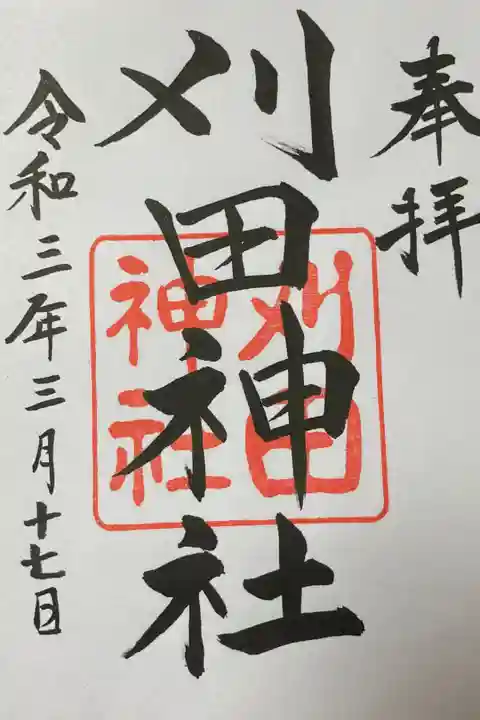 奉拝
刈田神社
刈田
神社
令和三年三月十七日